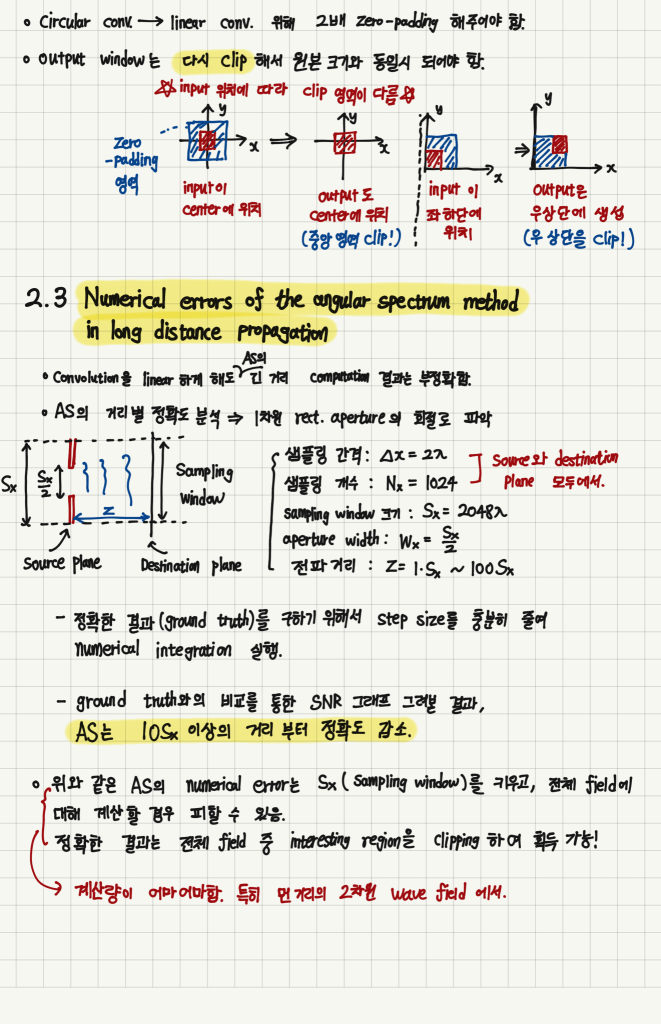 o Circular conv. → linear conv. 위해 2배 zero-padding 해주어야 함.
o Output window는 다시 clip 해서 원본 크기와 동일시 되어야 함.
☆ input 위치에 따라 clip 영역이 다름 ☆
y
x
Zero
-padding
영역
input이
center에 위치
⇒
y
x
output도
center에 위치
(중앙 영역 clip!)
y
x
input이
좌하단에
위치
⇒
y
x
output은
우상단에 생성
(우상단을 clip!)
2.3 Numerical errors of the angular spectrum method
in long distance propagation
AS의
o Convolution을 linear 하게 해도 긴 거리 computation 결과는 부정확함.
o AS의 거리별 정확도 분석 ⇒ 1차원 rect. aperture의 회절로 파악
Sx
Sx/2
z
Sampling
window
Source plane
Destination plane
샘플링 간격 : Δx = 2λ
샘플링 개수 : Nx = 1024
Source와 destination
plane 모두에서.
sampling window 크기 : Sx = 2048λ
aperture width : Wx = Sx/2
전파 거리 : Z = 1·Sx ~ 100Sx
- 정확한 결과(ground truth)를 구하기 위해서 step size를 충분히 줄여
numerical integration 실행.
- ground truth와의 비교를 통한 SNR 그래프 그려본 결과,
AS는 10Sx 이상의 거리 부터 정확도 감소.
o 위와 같은 AS의 numerical error는 Sx (sampling window)를 키우고, 전체 field에
대해 계산할 경우 피할 수 있음.
정확한 결과는 전체 field 중 interesting region을 clipping 하여 획득 가능!
계산량이 어마어마함. 특히 먼 거리의 2차원 wave field 에서.